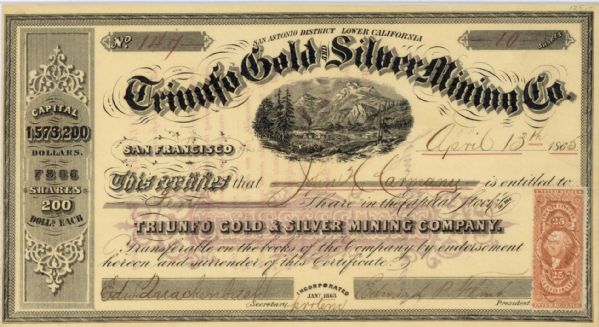 No. 149
SAN ANTONIO DISTRICT LOWER CALIFORNIA
10 SHARES
Triunfo Gold AND Silver Mining Co.
CAPITAL
1,573,200
DOLLARS.
7866
SHARES
200
DOLLS. EACH
SAN FRANCISCO
April 13th 1865
This certifies that John H. is entitled to
Ten Share in the Capital Stock of
TRIUNFO GOLD & SILVER MINING COMPANY.
Transferable on the books of the Company by endorsement
hereon and surrender of this Certificate.
25
INCORPORATED
JANY 1863
Secretary. protem President.